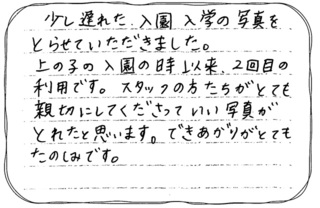 少し遅れた入園入学の写真を
とらせていただきました。
上の子の入園の時以来、2回目の
利用です。スタッフの方たちがとても
親切にしてくださっていい写真が
とれたと思います。できあがりがとても
たのしみです。